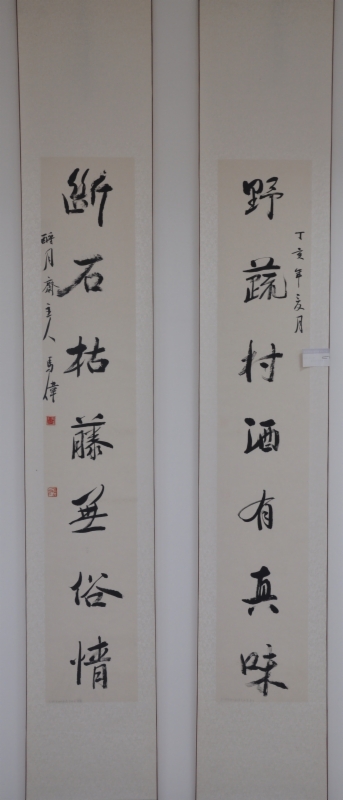 野蔬村酒有真味
丁亥年夏月
断石枯藤無俗情
醉月齋主人馬偉